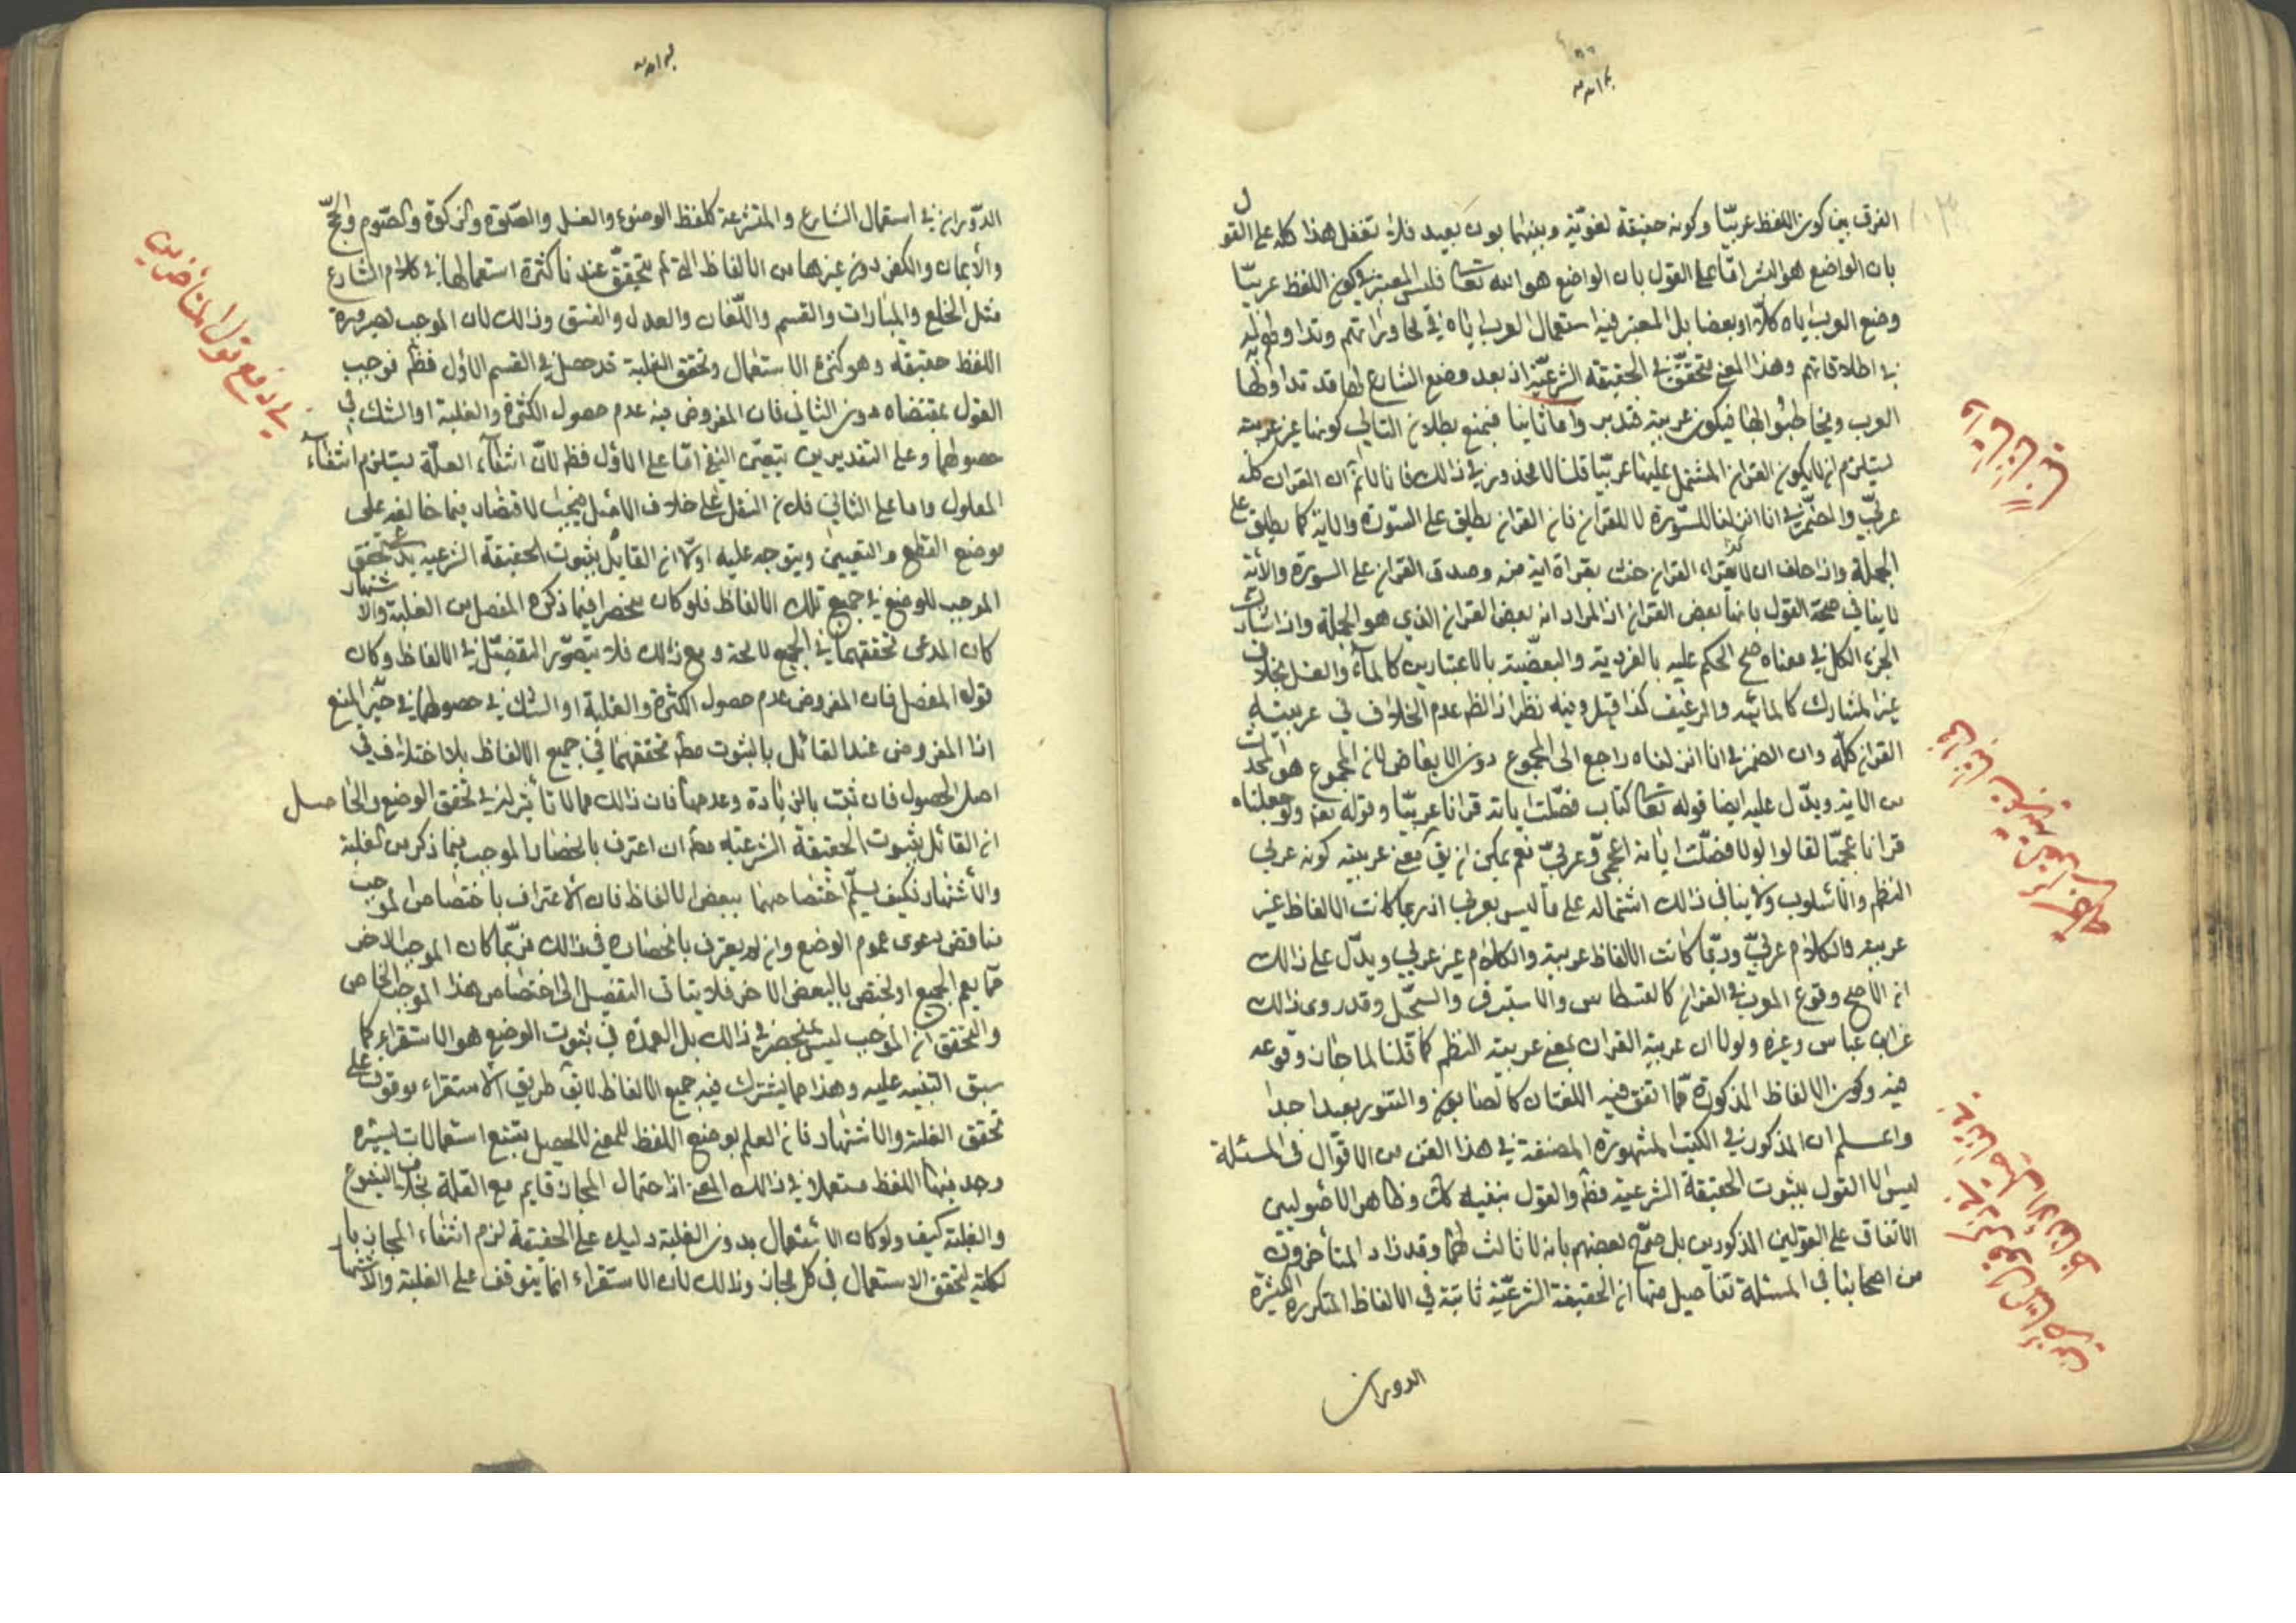 الفرق بين كون اللفظ عربيّا وكونه حقيقة لغويّة وبينهما بون بعيد فلا تغفل هذا كله على القول
بان الواضع هو الشرع امّا على القول بان الواضع هو الله تعا فليس المعتبر في كون اللفظ عربيّا
وضع العرب اياه كلّا او بعضا بل المعتبر فيه استعمال العرب ايّاه في محاوراتهم وتداولهم له
في اطلاقاتهم وهذا المعنى يتحقّق في الحقيقة الشرعيّة اذ بعد وضع الشارع لها قد تداولها
العرب وتخاطبوا بها فيكون عربية فتدبر واما ثانيا فبمنع بطلان التالي كونها غير عربية
يستلزم ان لا يكون القران المشتمل عليها عربيّا قلنا لا محذور في ذالك فانا لا نم ان القران كله
عربيّ والضمير في انا انزلناه للسورة لا للقران فان القران يطلق على السورة والاية كما يطلق على
الجملة واذا حلف ان لا يقراء القران حنث بقراءة اية منه وصدق القران على السورة والأية
لا ينافي صحة القول بانها بعض القران اذ المراد انه بعض القران الذي هو الجملة واذا شارك
الجزء الكل في معناه صح الحكم عليه بالفردية والبعضية بالاعتبارين كالماء والعسل بخلاف
غير المشارك كالمائة والرغيف كذا قيل وفيه نظر اذ الظ عدم الخلاف في عربية
القران كلّه وان الضمير في انا انزلناه راجع الى المجموع دون الابعاض لان المجموع هو
من الاية ويدّل عليه ايضا قوله تعا كتاب فصّلت اياته قرانا عربيّا وقوله تعه ولو جعلناه
قرانا عجميّا لقالوا لولا فصّلت اياته اعجميّ وعربيّ نعم يمكن ان يق معنى عربيته كونه عربي
النظم والأسلوب ولا ينافي ذالك اشتماله على ما ليس بعربي اذ ربما كانت الالفاظ غير
عربية والكلام عربيّ وربّما كانت الالفاظ عربية والكلام غير عربي ويدّل على ذالك
ان الاصح وقوع المعرب في القران كالقسطاس والاستبرق والسجّيل وقد روى ذالك
عن ابن عباس وغيره ولولا ان عربية القران بمعنى عربية النظم كما قلنا لما جاز وقوعه
فيه وكون الالفاظ المذكورة ممّا اتفق فيه اللغتان كالصابون والتنور بعيد جدا
واعلم ان المذكور في الكتب المشهورة المصنفة في هذا الفن من الاقوال في المسئلة
ليس الا القول بثبوت الحقيقة الشرعية مطم والقول بنفيه كك وظاهر الاصوليين
الاتفاق على القولين المذكورين بل صرّح بعضهم بانه لا ثالث لهما وقد زاد المتأخرون
من اصحابنا في المسئلة تفاصيل منها ان الحقيقة الشرعيّة ثابتة في الالفاظ المتكررة الكثيرة
الدوران
الدّوران في استعمال الشارع والمتشرعة كلفظ الوضوء والغسل والصّلوة والزكوة والصّوم والحجّ
والأيمان والكفر دون غيرها من الالفاظ التي لم يتحقّق عندنا كثرة استعمالها في كلام الشارع
مثل الخلع والمبارات والقسم واللّعان والعدل والفسق وذالك لان الموجب لصيرورة
اللفظ حقيقة وهو كثرة الاستعمال وتحقق الغلبة قد حصل في القسم الاول فظم فوجب
القول بمقتضاه دون الثاني فان المفروض فيه عدم حصول الكثرة والغلبة او الشك في
حصولهما وعلى التقديرين يتعيّن النفي امّا على الاوّل فظم لانّ انتفاء العلّة يستلزم انتفاء
المعلول واما على الثاني فلان النقل على خلاف الاصل فيجب الاقتصار فيما خالفه على
موضع القطع واليقين ويتوجه عليه اولا ان القايل بثبوت الحقيقة الشرعية يدعى تحقق
الموجب للوضع في جميع تلك الالفاظ فلو كان منحصرا فيما ذكره المفصل من الغلبة والاشتهار
كان المدعى تحققهما في الجميع لا محة ومع ذالك فلا يتصوّر التفصّيل في الالفاظ وكان
قوله المفصل فان المفروض عدم حصول الكثرة والغلبة او الشك في حصولهما في حيّز المنع
اذا المفروض عند القائل بالثبوت مطم تحققهما في جميع الالفاظ بلا اختلاف في
اصل الحصول فان ثبت بالزيادة وعدمها فان ذالك مما لا تأثير له في تحقق الوضع والحاصل
ان القائل بثبوت الحقيقة الشرعيّة مطم ان اعترف بانحصار الموجب فيما ذكر من الغلبة
والأشتهار فكيف يسلّم اختصاصهما ببعض الالفاظ فان الأعتراف باختصاص الموجب
يناقض دعوى عموم الوضع وان لم يعترف بانحصاره في ذالك فربّما كان الموجب الاخر
ممّا يعم الجميع او يختص بالبعض الاخر فلا يتاتى التفصيل الى اختصاص هذا الموجب الخاص
والتحقيق ان الموجب ليس بمنحصر في ذالك بل العمدة في ثبوت الوضع هو الاستقراء كما
سبق التنبيه عليه وهذا مما يشترك فيه جميع الالفاظ لا يق طريق الأستقراء موقوف على
تحقق الغلبة والاشتهار فان العلم بوضع اللفظ للمعنى لا يحصل بتتبع استعمالات يسيرة
وجد فيها اللفظ مستعملا في ذالك المعنى اذ احتمال المجاز قايم مع القلة بخلاف الشيوع
والغلبة كيف ولو كان الأستعمال بدون الغلبة دليل على الحقيقة لزم انتفاء المجاز بال
كلية لتحقق الاستعمال في كل مجاز وذالك لان الاستقراء انما يتوقف على الغلبة والاشتهار
في دفع قول المتأخرين